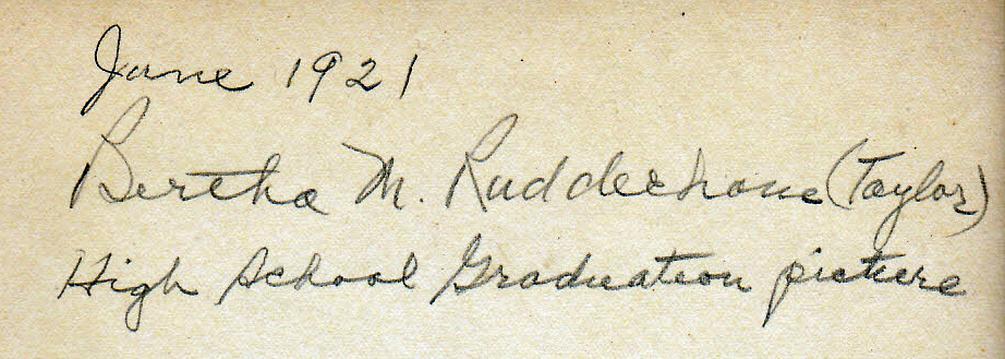 June 1921
Bertha M. Rudderhouse (Taylor)
High School Graduation picture